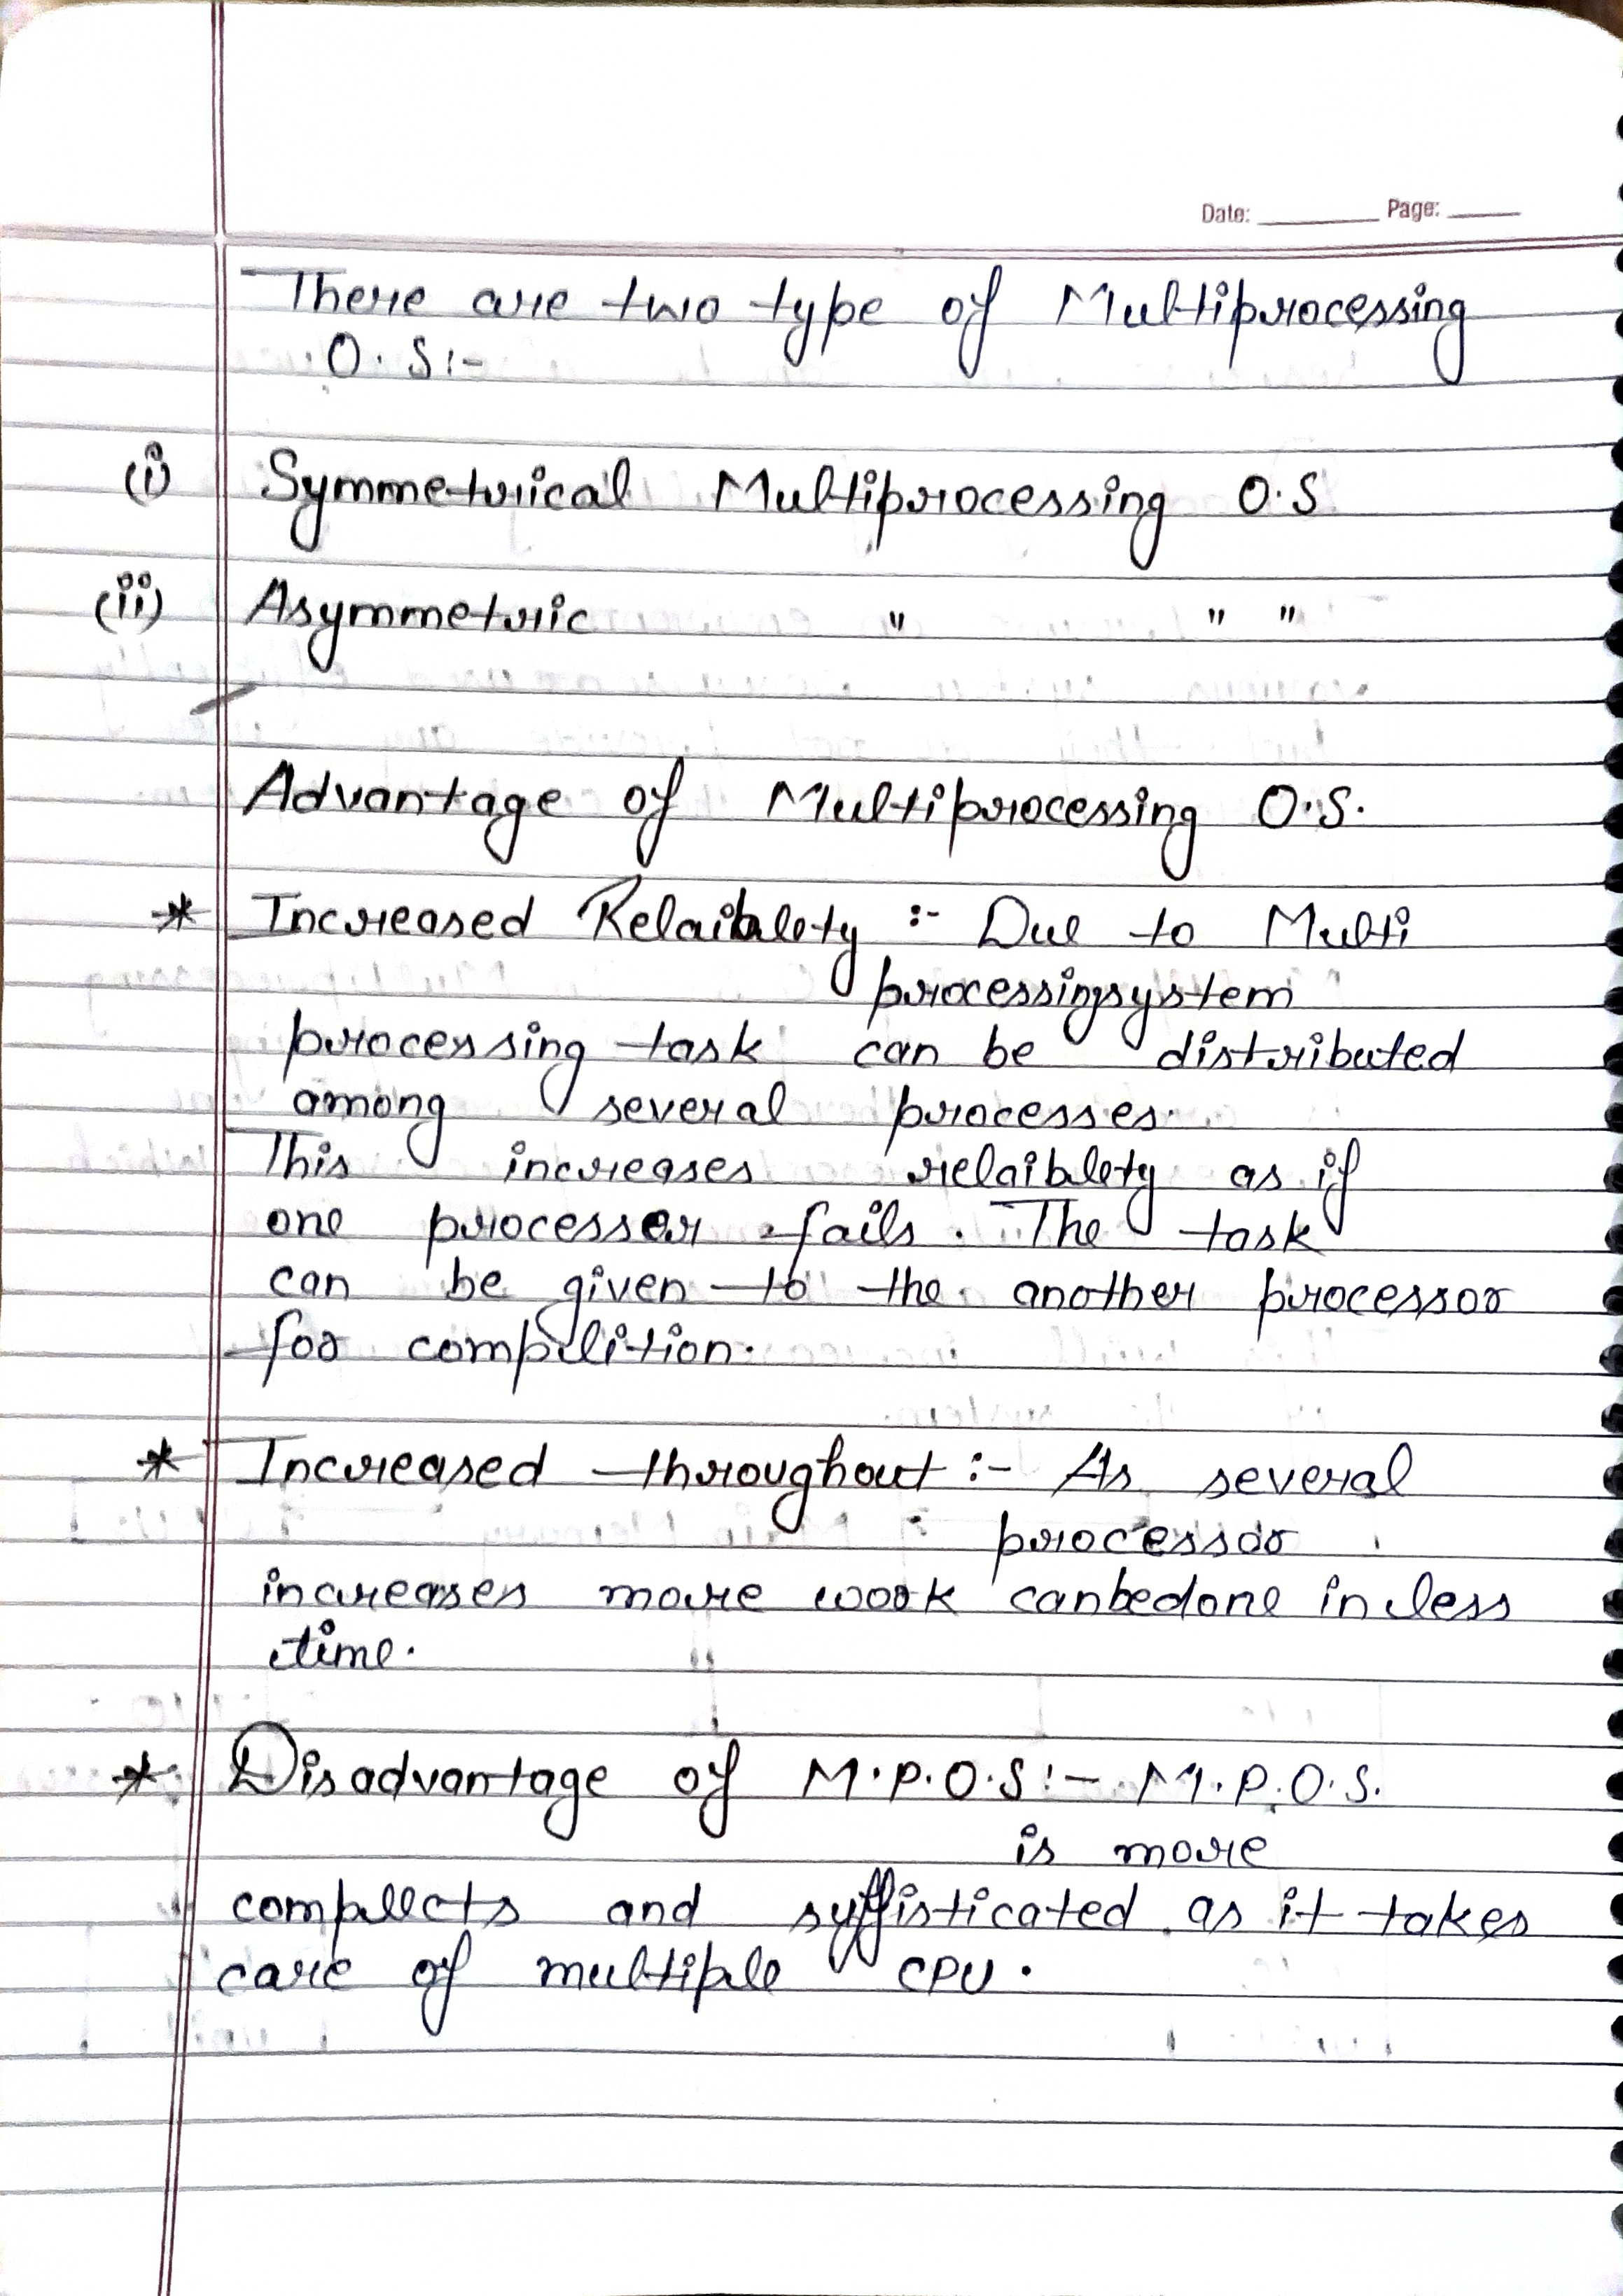 Date: ________ Page: _____
There are two type of Multiprocessing
O.S:-
(i) Symmetrical Multiprocessing O.S
(ii) Asymmetric " " "
Advantage of Multiprocessing O.S.
* Increased Relaiblety :- Due to Multi
processingsystem
processing task can be distributed
among several processes.
This increases relaiblety as if
one processer fails. The task
can be given to the another processor
for complition.
* Increased throughout :- As several
processor
increases more work canbedone in less
time.
* Disadvantage of M.P.O.S:- M.P.O.S.
is more
complects and syffisticated as it takes
care of multiple CPU.